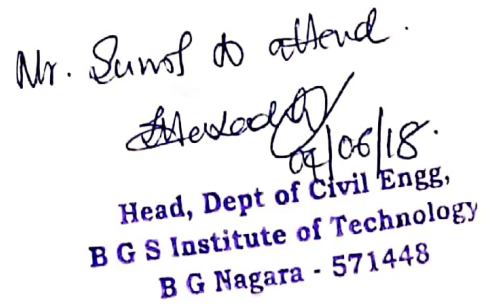 Mr. Sunof to attend.
07/06/18.
Head, Dept of Civil Engg,
B G S Institute of Technology
B G Nagara - 571448